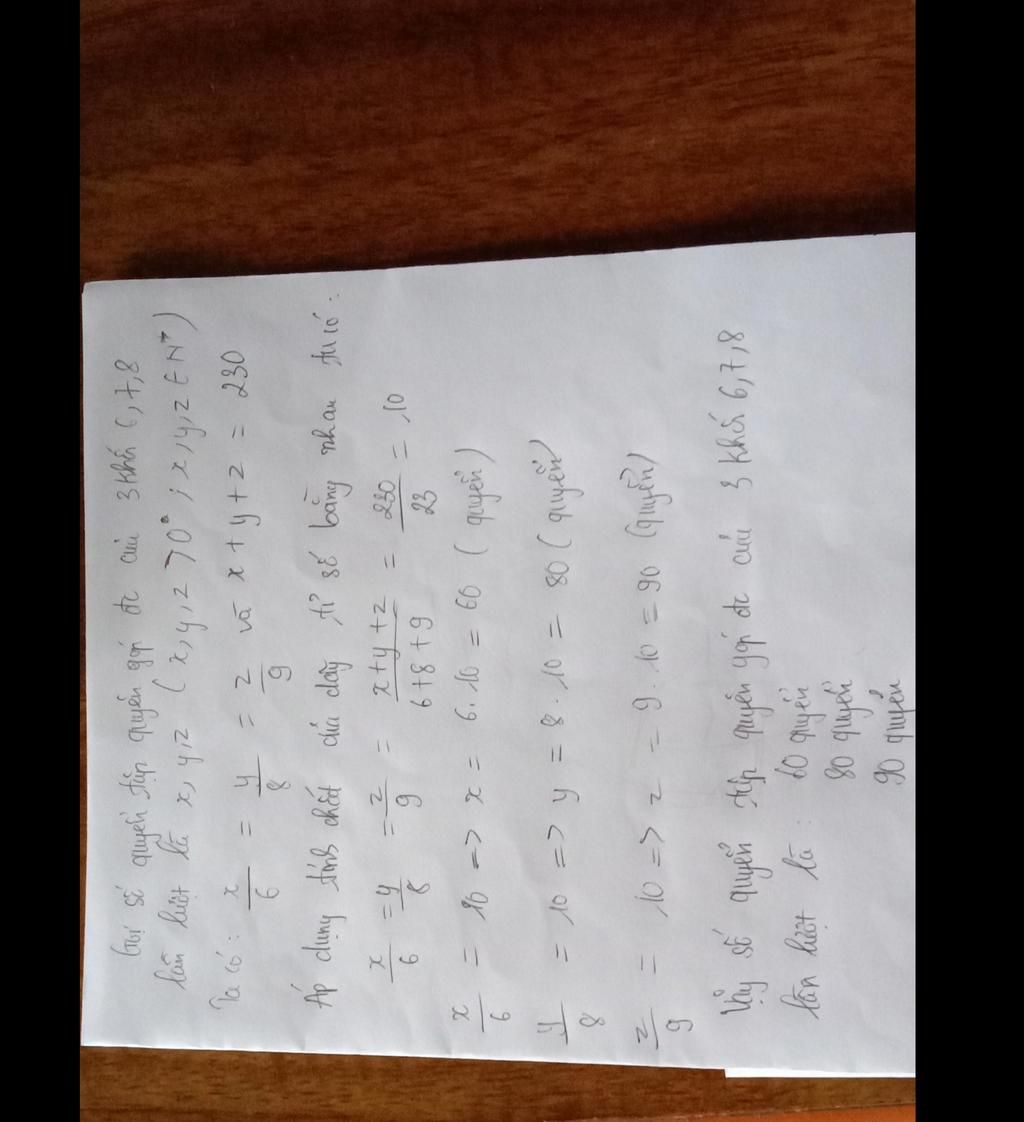 Gọi số quyển tập quyên góp đc của 3 khối 6, 7, 8
lần lượt là x, y, z ( x, y, z > 0 ; x, y, z ∈ N* )
Ta có : x/6 = y/8 = z/9 và x + y + z = 230
Áp dụng tính chất của dãy tỉ số bằng nhau ta có :
x/6 = y/8 = z/9 = (x + y + z)/(6 + 8 + 9) = 230/23 = 10
x/6 = 10 => x = 6 . 10 = 60 ( quyển )
y/8 = 10 => y = 8 . 10 = 80 ( quyển )
z/9 = 10 => z = 9 . 10 = 90 ( quyển )
Vậy số quyển tập quyên góp đc của 3 khối 6, 7, 8
lần lượt là : 60 quyển
80 quyển
90 quyển